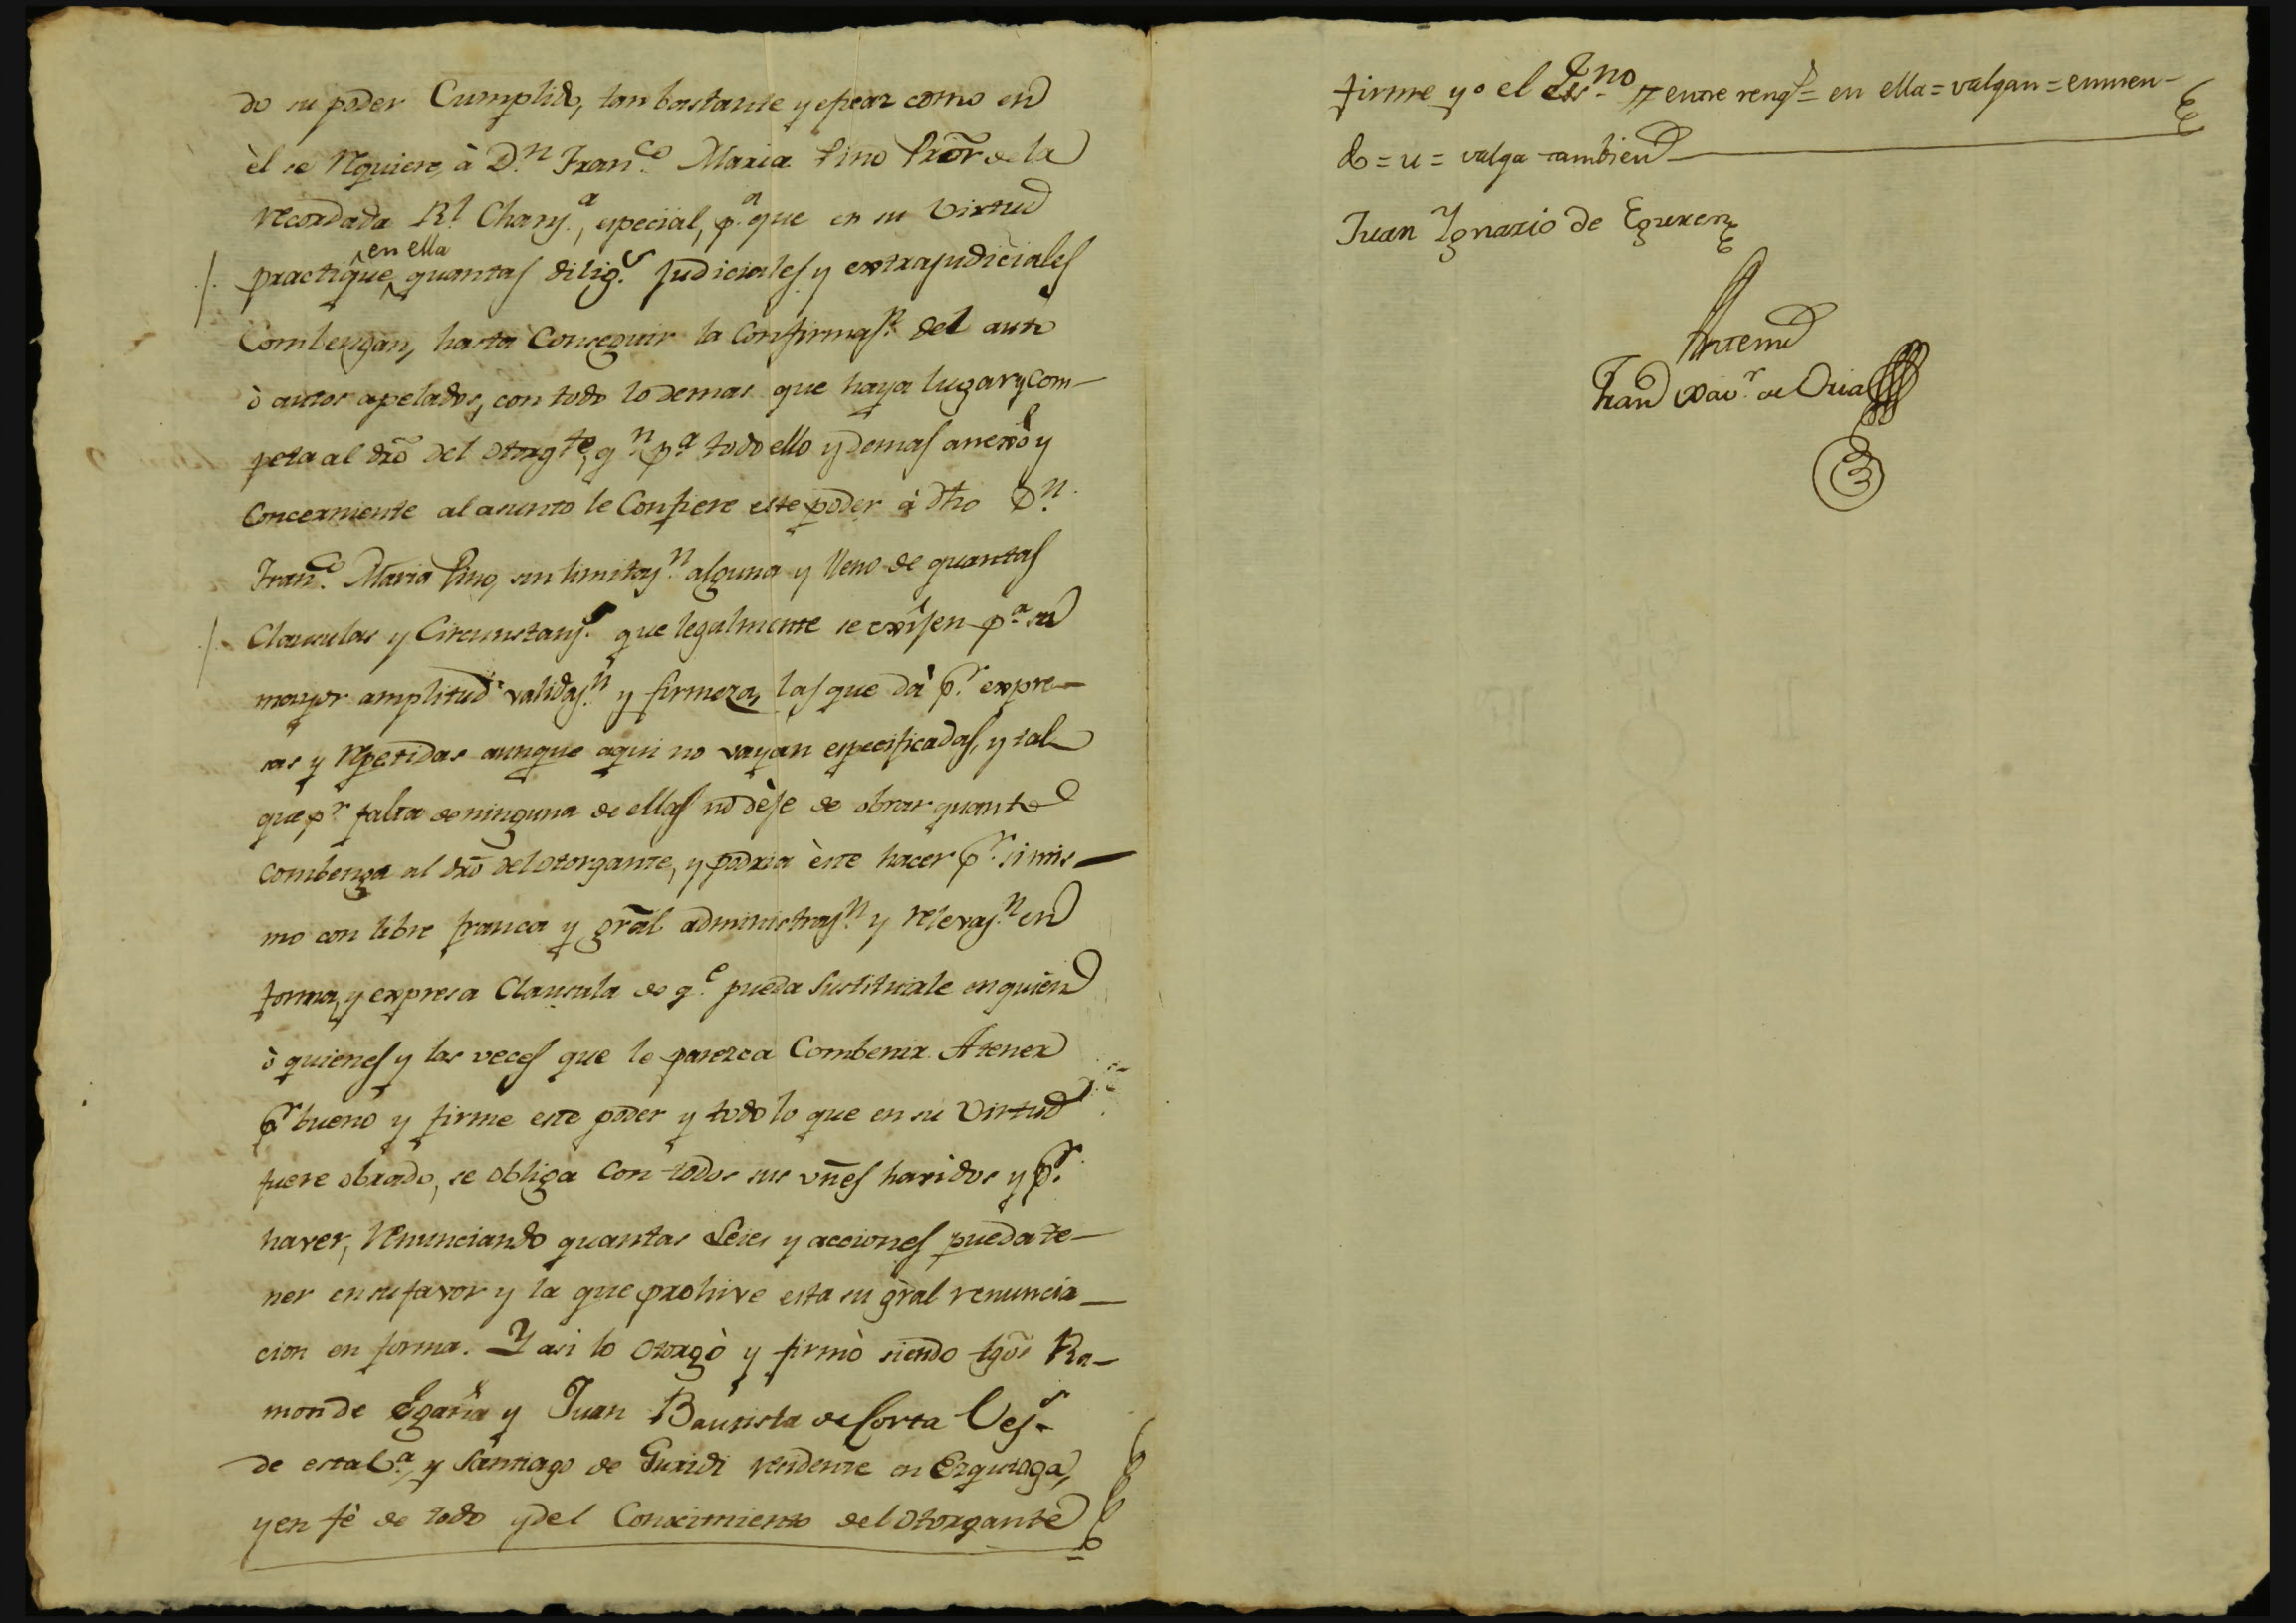 do su poder Cumplido, tan bastante y eficaz como en
èl se requiere, à D.n Fran.co Maria Pino Pror de la
recordada R.l Chanz.a, especial, p.a que en su virtud
practique en ella quantas dilig.s Judiciales y extrajudiciales
Combengan, hasta Conseguir la Confirmaz.n del auto
ò autos apelados, con todo lo demas que haya lugar y com-
peta al dro del Otorg.te, q.n p.a todo ello y demas anexò y
Concerniente al asunto le Confiere este poder à dho D.n
Fran.co Maria Pino, sin limitaz.n alguna y lleno de quantas
Clausulas y Circunstanz.s que legalmente se exijen p.a su
mayor amplitud validaz.n y firmeza, las que dà p.r expre-
sas y repetidas aunque aqui no vayan especificadas, y tal
que p.r falta de ninguna de ellas no dèje de obrar quanto
combenga al dro del otorgante, y podria èste hacer p.r si mis-
mo con libre franca y gral administraz.n y relevaz.n en
forma, y expresa Clausula de q.e pueda Sustituirle en quien
ò quienes y las veces que le parezca Combenir. A tener
p.r bueno y firme este poder y todo lo que en su virtud
fuere obrado, se obliga con todos sus vnes havidos y p.r
haver, renunciando quantas Leies y acciones pueda te-
ner en su favor y la que prohive esta su gral renuncia-
cion en forma. Y asi lo otorgò y firmò siendo tgos Ra-
mon de Egaña y Juan Bautista de Corta Vez.s
de esta V.a, y Santiago de Guridi residente en Ezquioga,
y en fè de todo y del Conocimiento del otorgante
firme yo el Es.no = entre reng.s = en ella = valgan = enmen-
do = u = valga tambien
Juan Ignazio de Eguren
Antemi
Fran Xav.r de Oria